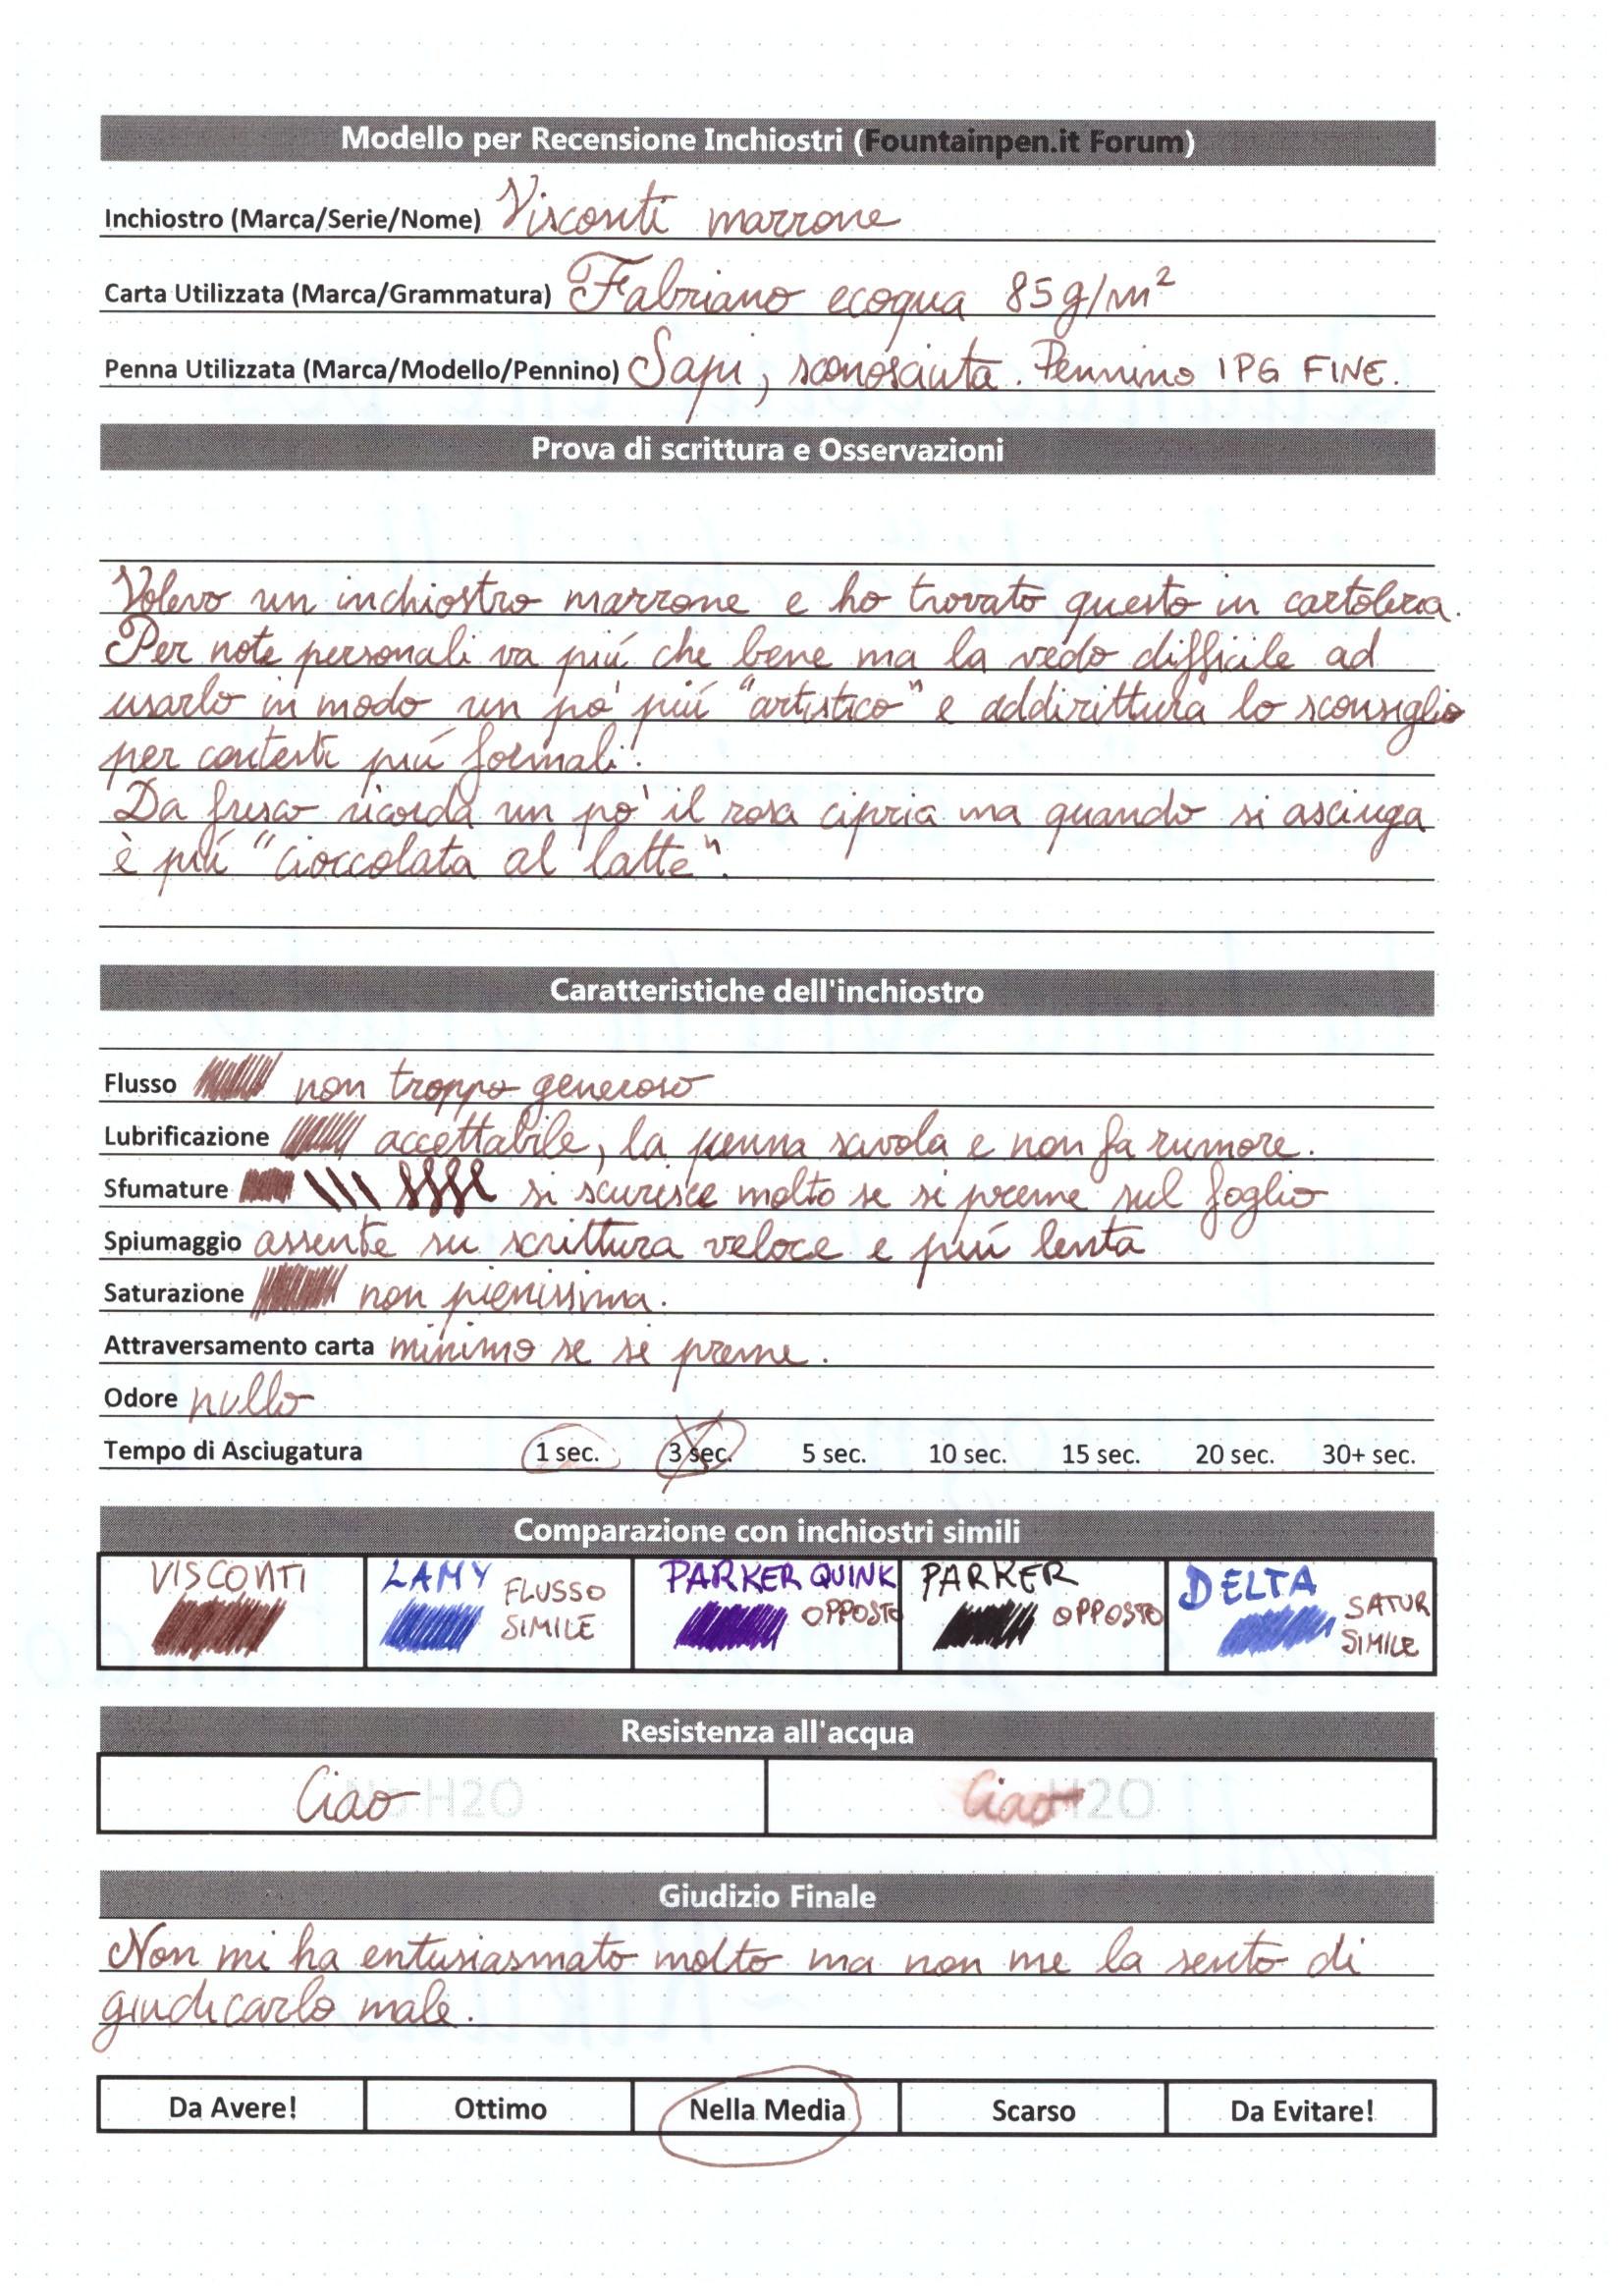 Modello per Recensione Inchiostri (Fountainpen.it Forum)
Inchiostro (Marca/Serie/Nome) Visconti marrone
Carta Utilizzata (Marca/Grammatura) Fabriano ecoqua 85g/m²
Penna Utilizzata (Marca/Modello/Pennino) Sapi, sconosciuta. Pennino IPG FINE.
Prova di scrittura e Osservazioni
Volevo un inchiostro marrone e ho trovato questo in cartoleria.
Per note personali va piú che bene ma la vedo difficile ad
usarlo in modo un po' piú "artistico" e addirittura lo sconsiglio
per contesti piú formali.
Da fresco ricorda un po' il rosa cipria ma quando si asciuga
è piú "cioccolata al latte".
Caratteristiche dell'inchiostro
Flusso non troppo generoso
Lubrificazione accettabile, la penna scivola e non fa rumore.
Sfumature si scurisce molto se si preme sul foglio
Spiumaggio assente su scrittura veloce e piú lenta
Saturazione non pienissima.
Attraversamento carta minimo se si preme.
Odore nullo
Tempo di Asciugatura 1 sec. 3 sec. 5 sec. 10 sec. 15 sec. 20 sec. 30+ sec.
Comparazione con inchiostri simili
VISCONTI LAMY FLUSSO SIMILE PARKER QUINK OPPOSTO PARKER OPPOSTO DELTA SATUR SIMILE
Resistenza all'acqua
Ciao No H2O Ciao H2O
Giudizio Finale
Non mi ha entusiasmato molto ma non me la sento di
giudicarlo male.
Da Avere! Ottimo Nella Media Scarso Da Evitare!